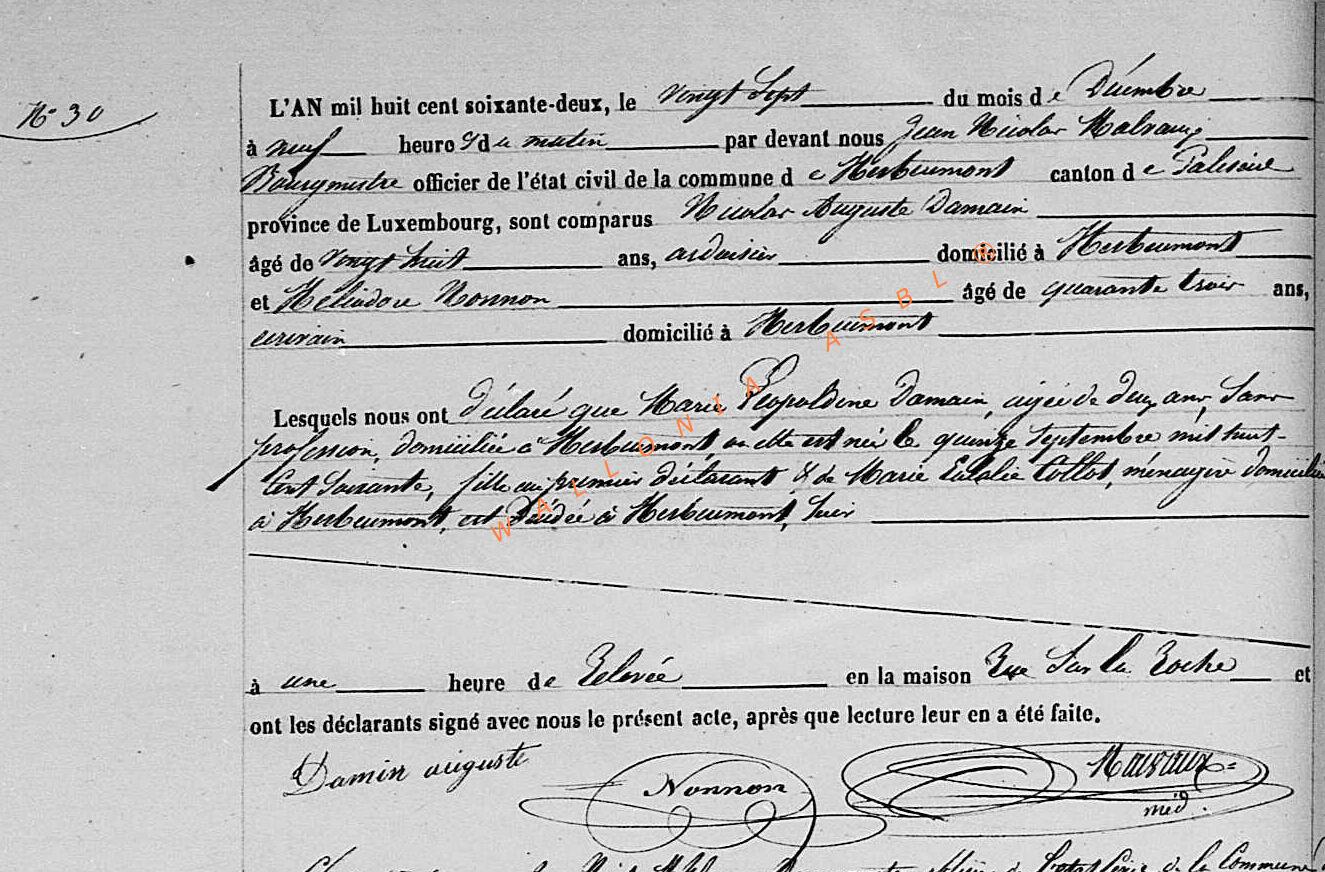 N° 30
L'AN mil huit cent soixante-deux, le vingt Sept du mois de Décembre
à neuf heure s du matin par devant nous Jean Nicolas Malvaux
Bourgmestre officier de l'état civil de la commune d e Herbeumont canton d e Paliseul
province de Luxembourg, sont comparus Nicolas Auguste Damain
âgé de vingt huit ans, ardoisier domicilié à Herbeumont
et Héliodore Nonnon âgé de quarante trois ans,
écrivain domicilié à Herbeumont
Lesquels nous ont déclaré que Marie Léopoldine Damain, agée de deux ans, Sans
profession, domiciliée à Herbeumont, où elle est née le quinze Septembre mil huit-
Cent Soixante, fille au premier déclarant & de Marie Eulalie Collot, ménagère domiciliée
à Herbeumont, est Décédée à Herbeumont, hier
à une heure de Relevée en la maison Rue Sur la Roche et
ont les déclarants signé avec nous le présent acte, après que lecture leur en a été faite.
Damin auguste Nonnon Malvaux
méd.
WALLONIA ASBL ®
de la Commune